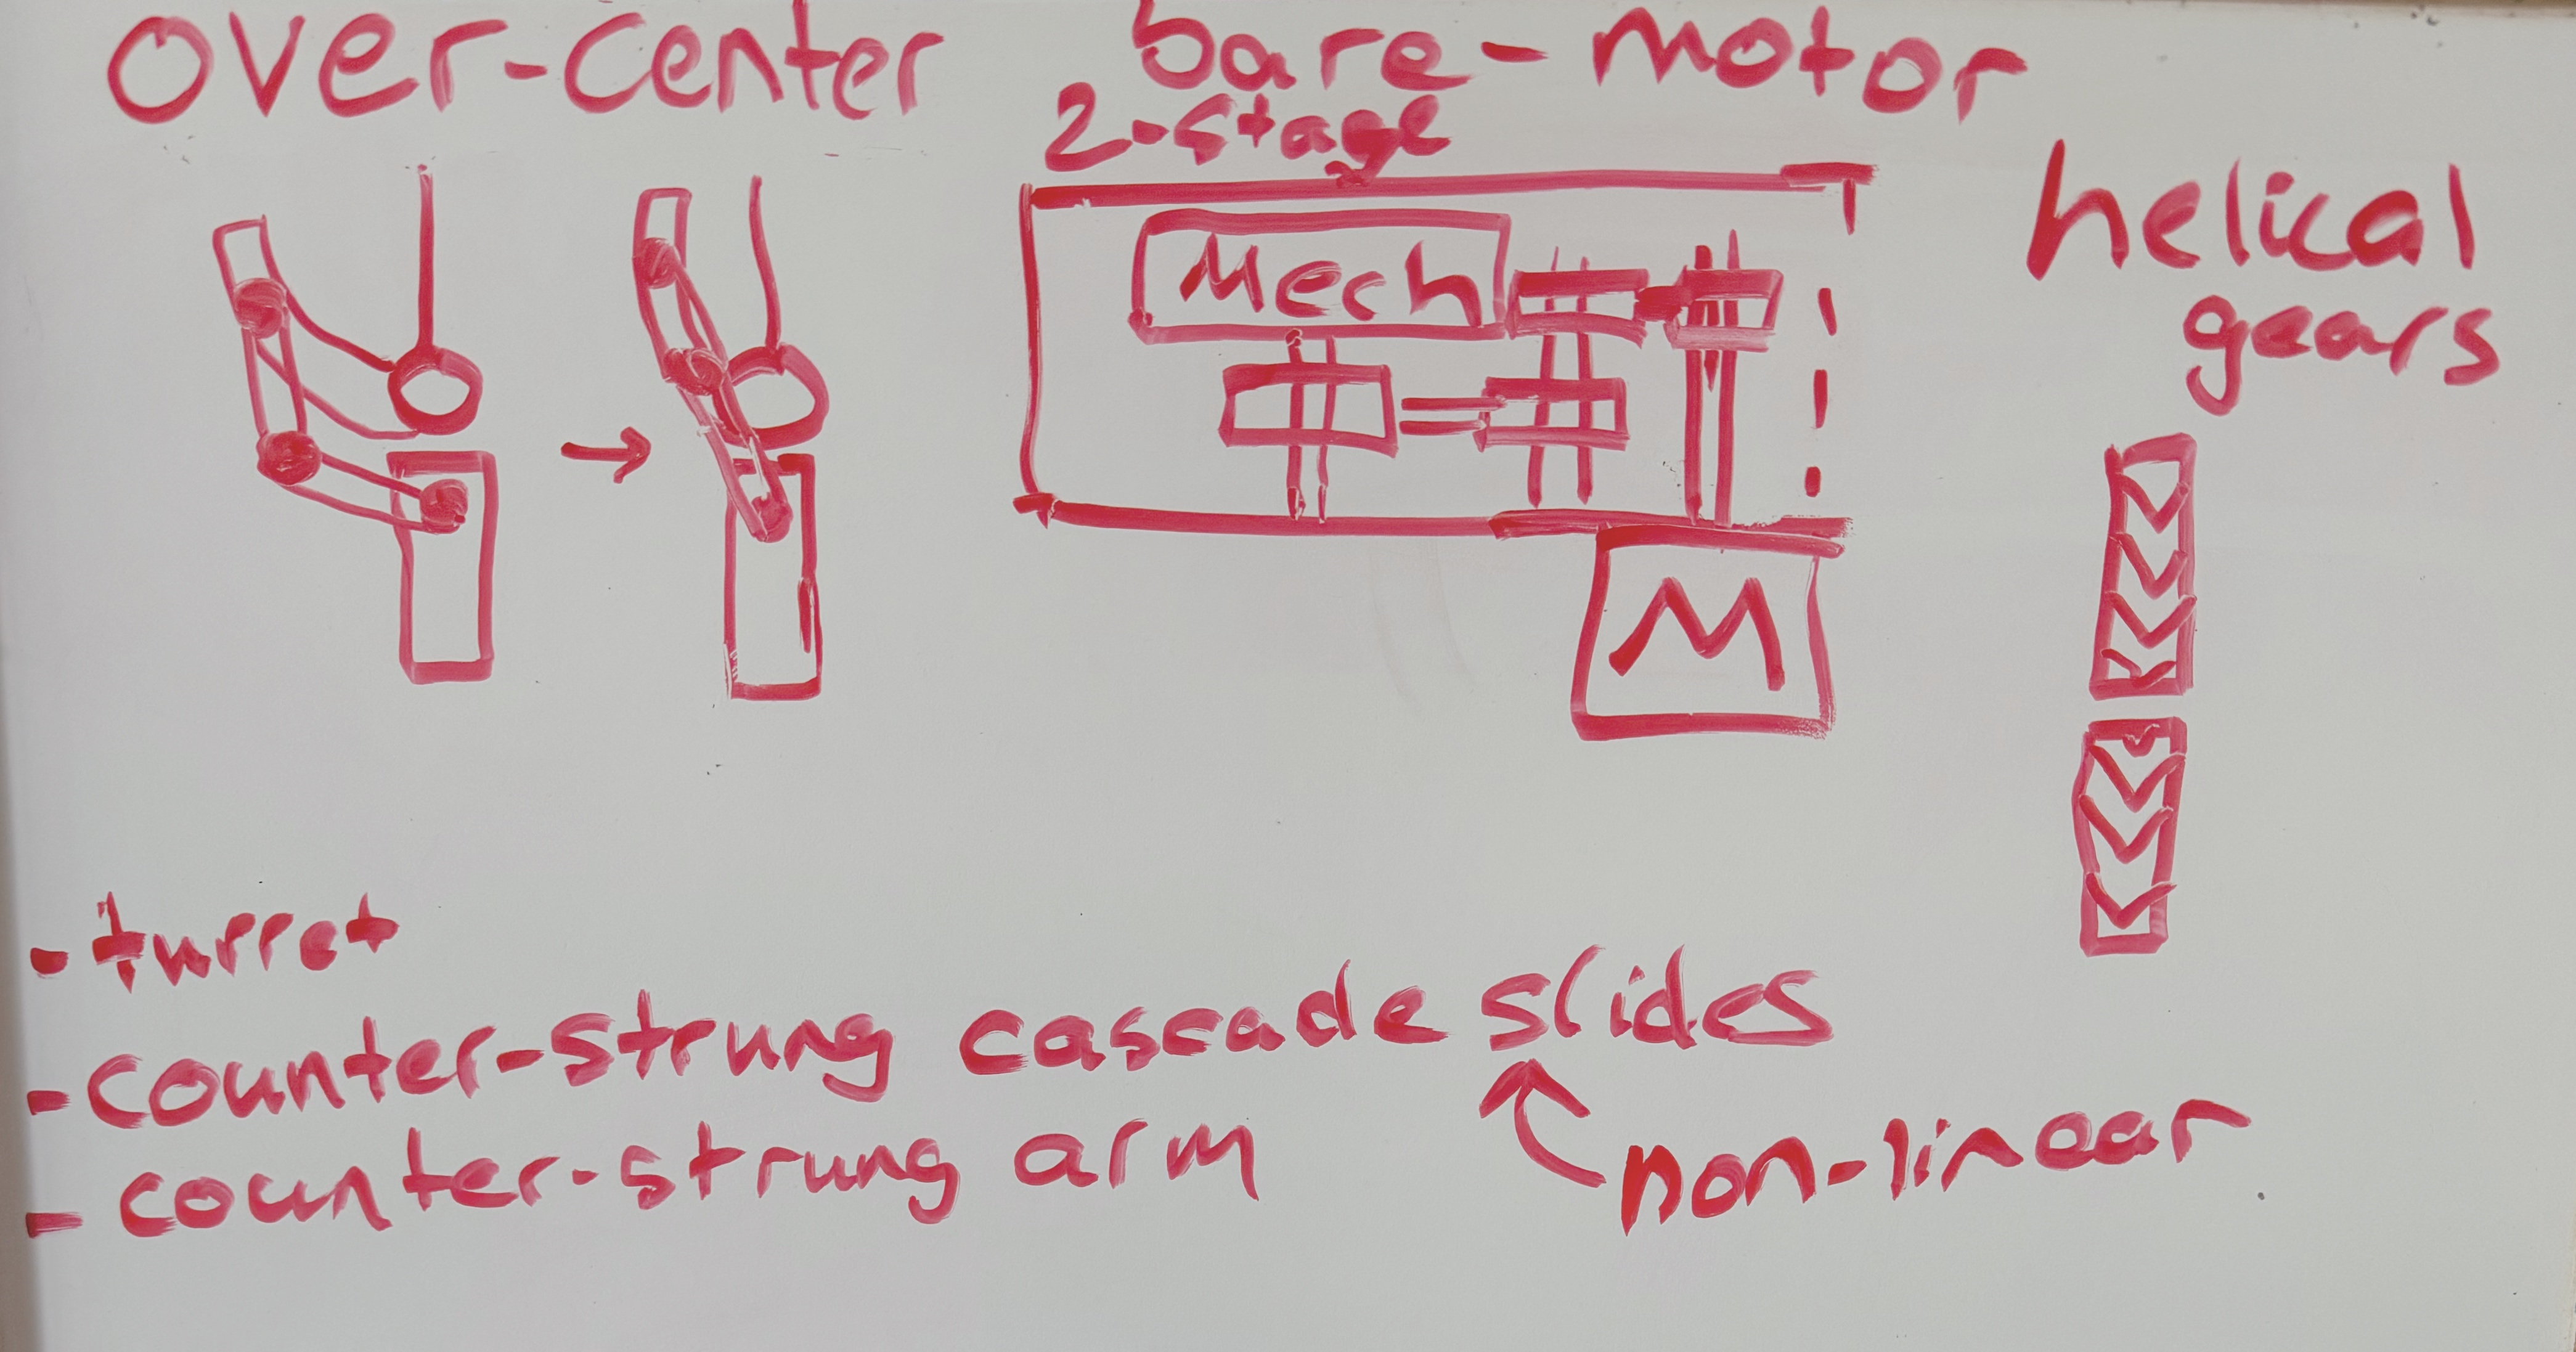 over-center
bare-motor
2-stage
Mech
M
helical
gears
- turret
- counter-strung cascade slides
non-linear
- counter-strung arm